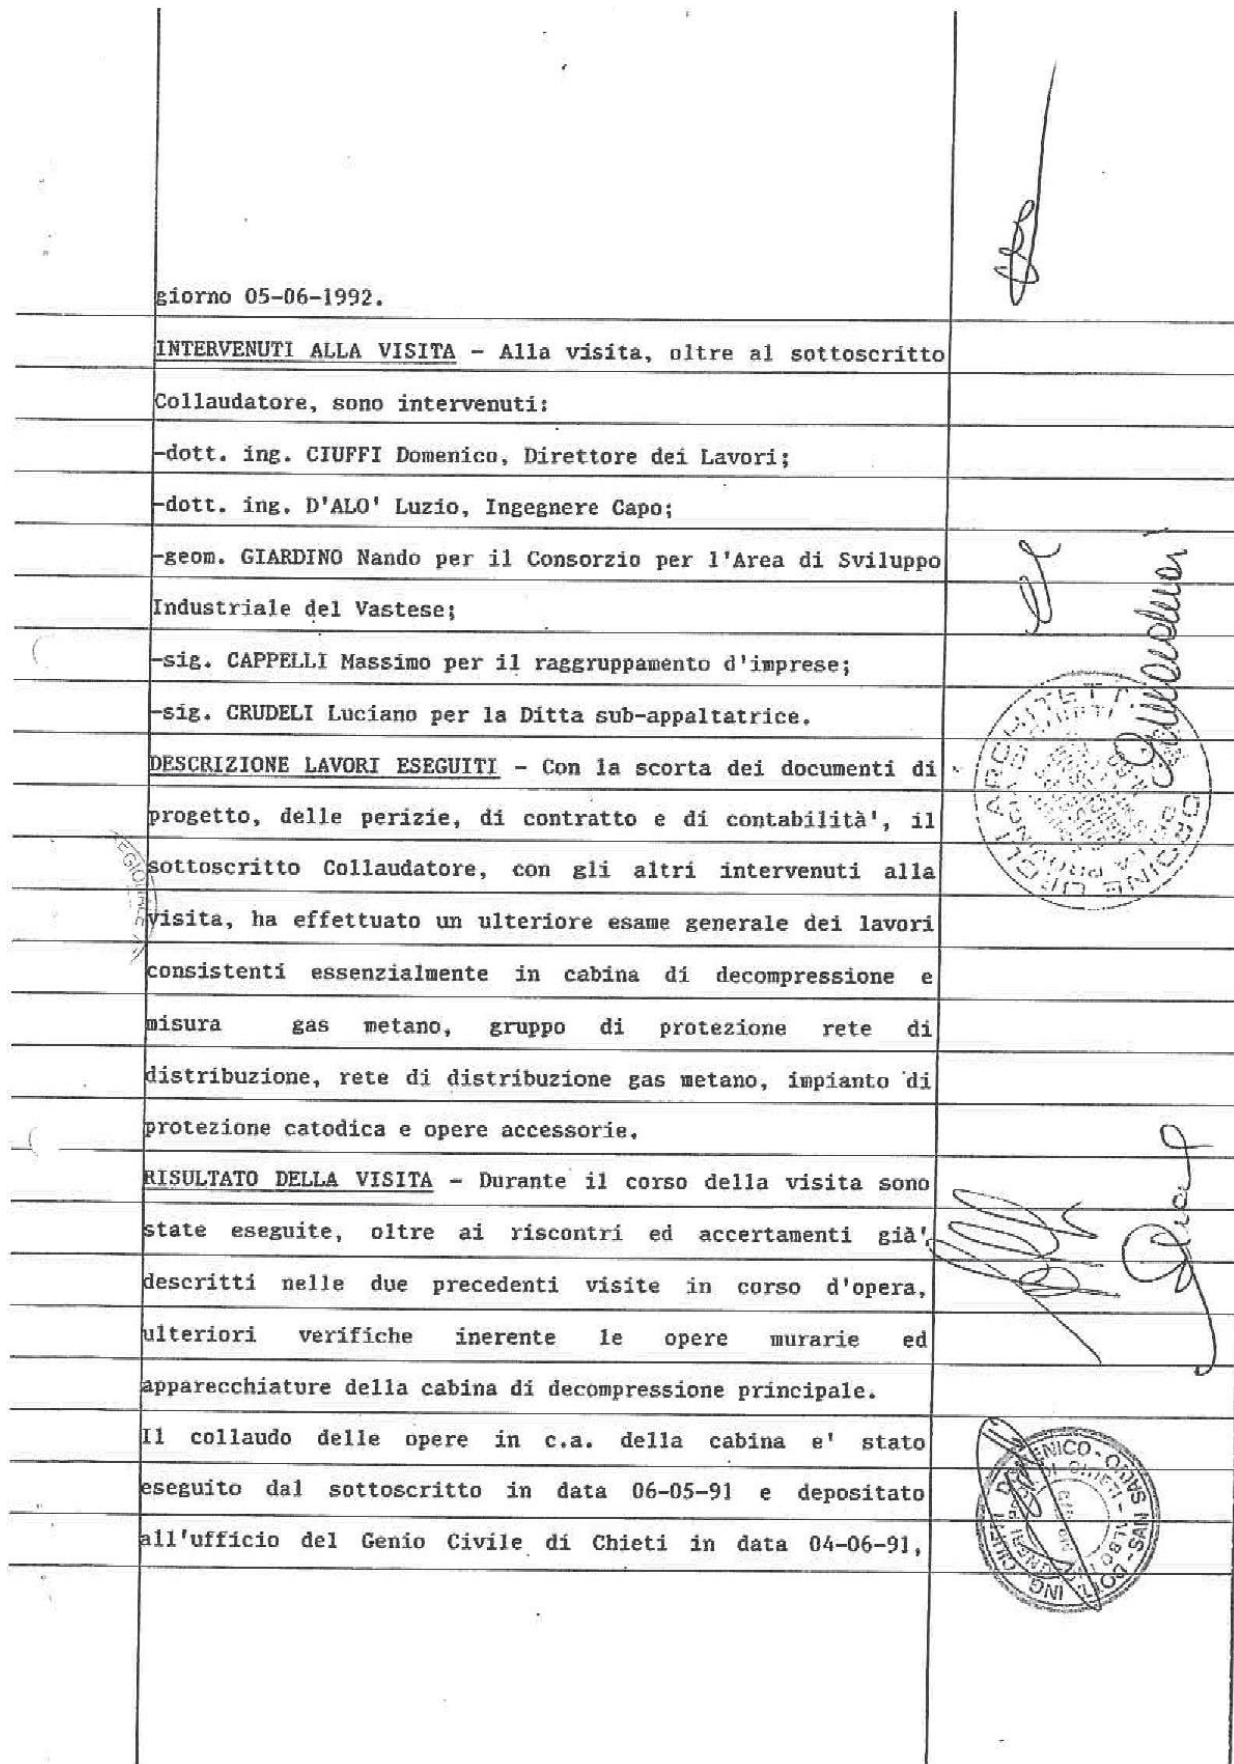 giorno 05-06-1992.
INTERVENUTI ALLA VISITA - Alla visita, oltre al sottoscritto
Collaudatore, sono intervenuti:
-dott. ing. CIUFFI Domenico, Direttore dei Lavori;
-dott. ing. D'ALO' Luzio, Ingegnere Capo;
-geom. GIARDINO Nando per il Consorzio per l'Area di Sviluppo
Industriale del Vastese;
-sig. CAPPELLI Massimo per il raggruppamento d'imprese;
-sig. CRUDELI Luciano per la Ditta sub-appaltatrice.
DESCRIZIONE LAVORI ESEGUITI - Con la scorta dei documenti di
progetto, delle perizie, di contratto e di contabilità', il
sottoscritto Collaudatore, con gli altri intervenuti alla
visita, ha effettuato un ulteriore esame generale dei lavori
consistenti essenzialmente in cabina di decompressione e
misura gas metano, gruppo di protezione rete di
distribuzione, rete di distribuzione gas metano, impianto di
protezione catodica e opere accessorie.
RISULTATO DELLA VISITA - Durante il corso della visita sono
state eseguite, oltre ai riscontri ed accertamenti già'
descritti nelle due precedenti visite in corso d'opera,
ulteriori verifiche inerente le opere murarie ed
apparecchiature della cabina di decompressione principale.
Il collaudo delle opere in c.a. della cabina e' stato
eseguito dal sottoscritto in data 06-05-91 e depositato
all'ufficio del Genio Civile di Chieti in data 04-06-91,
ORDINE DEGLI ARCHITETTI
DELLA PROVINCIA
DOTT. ING. CIUFFI DOMENICO